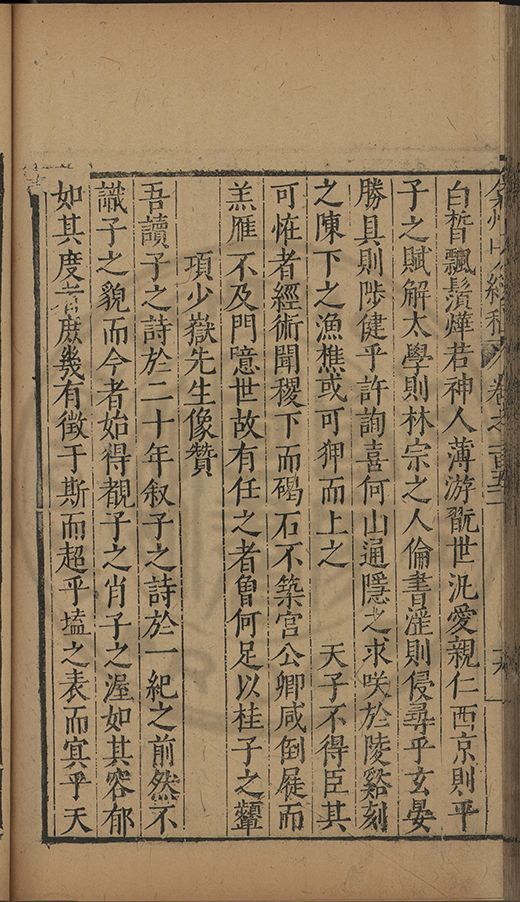 白皙飄鬚燁若神人薄游翫世汎愛親仁西京則平
子之賦解太學則林宗之人倫書淫則侵尋乎玄晏
勝具則陟健乎許詢喜何山通隱之求咲於陵谿刻
之陳下之漁樵或可狎而上之　天子不得臣其
可恠者經術聞稷下而碣石不築宮公卿咸倒屣而
羔雁不及門噫世故有任之者曾何足以桂子之顰
項少嶽先生像贊
吾讀子之詩於二十年叙子之詩於一紀之前然不
識子之貌而今者始得覩子之肖子之渥如其容郁
如其度者庶幾有徵于斯而超乎壒之表而寘乎天
弇州山人續稿 卷之一百五十二